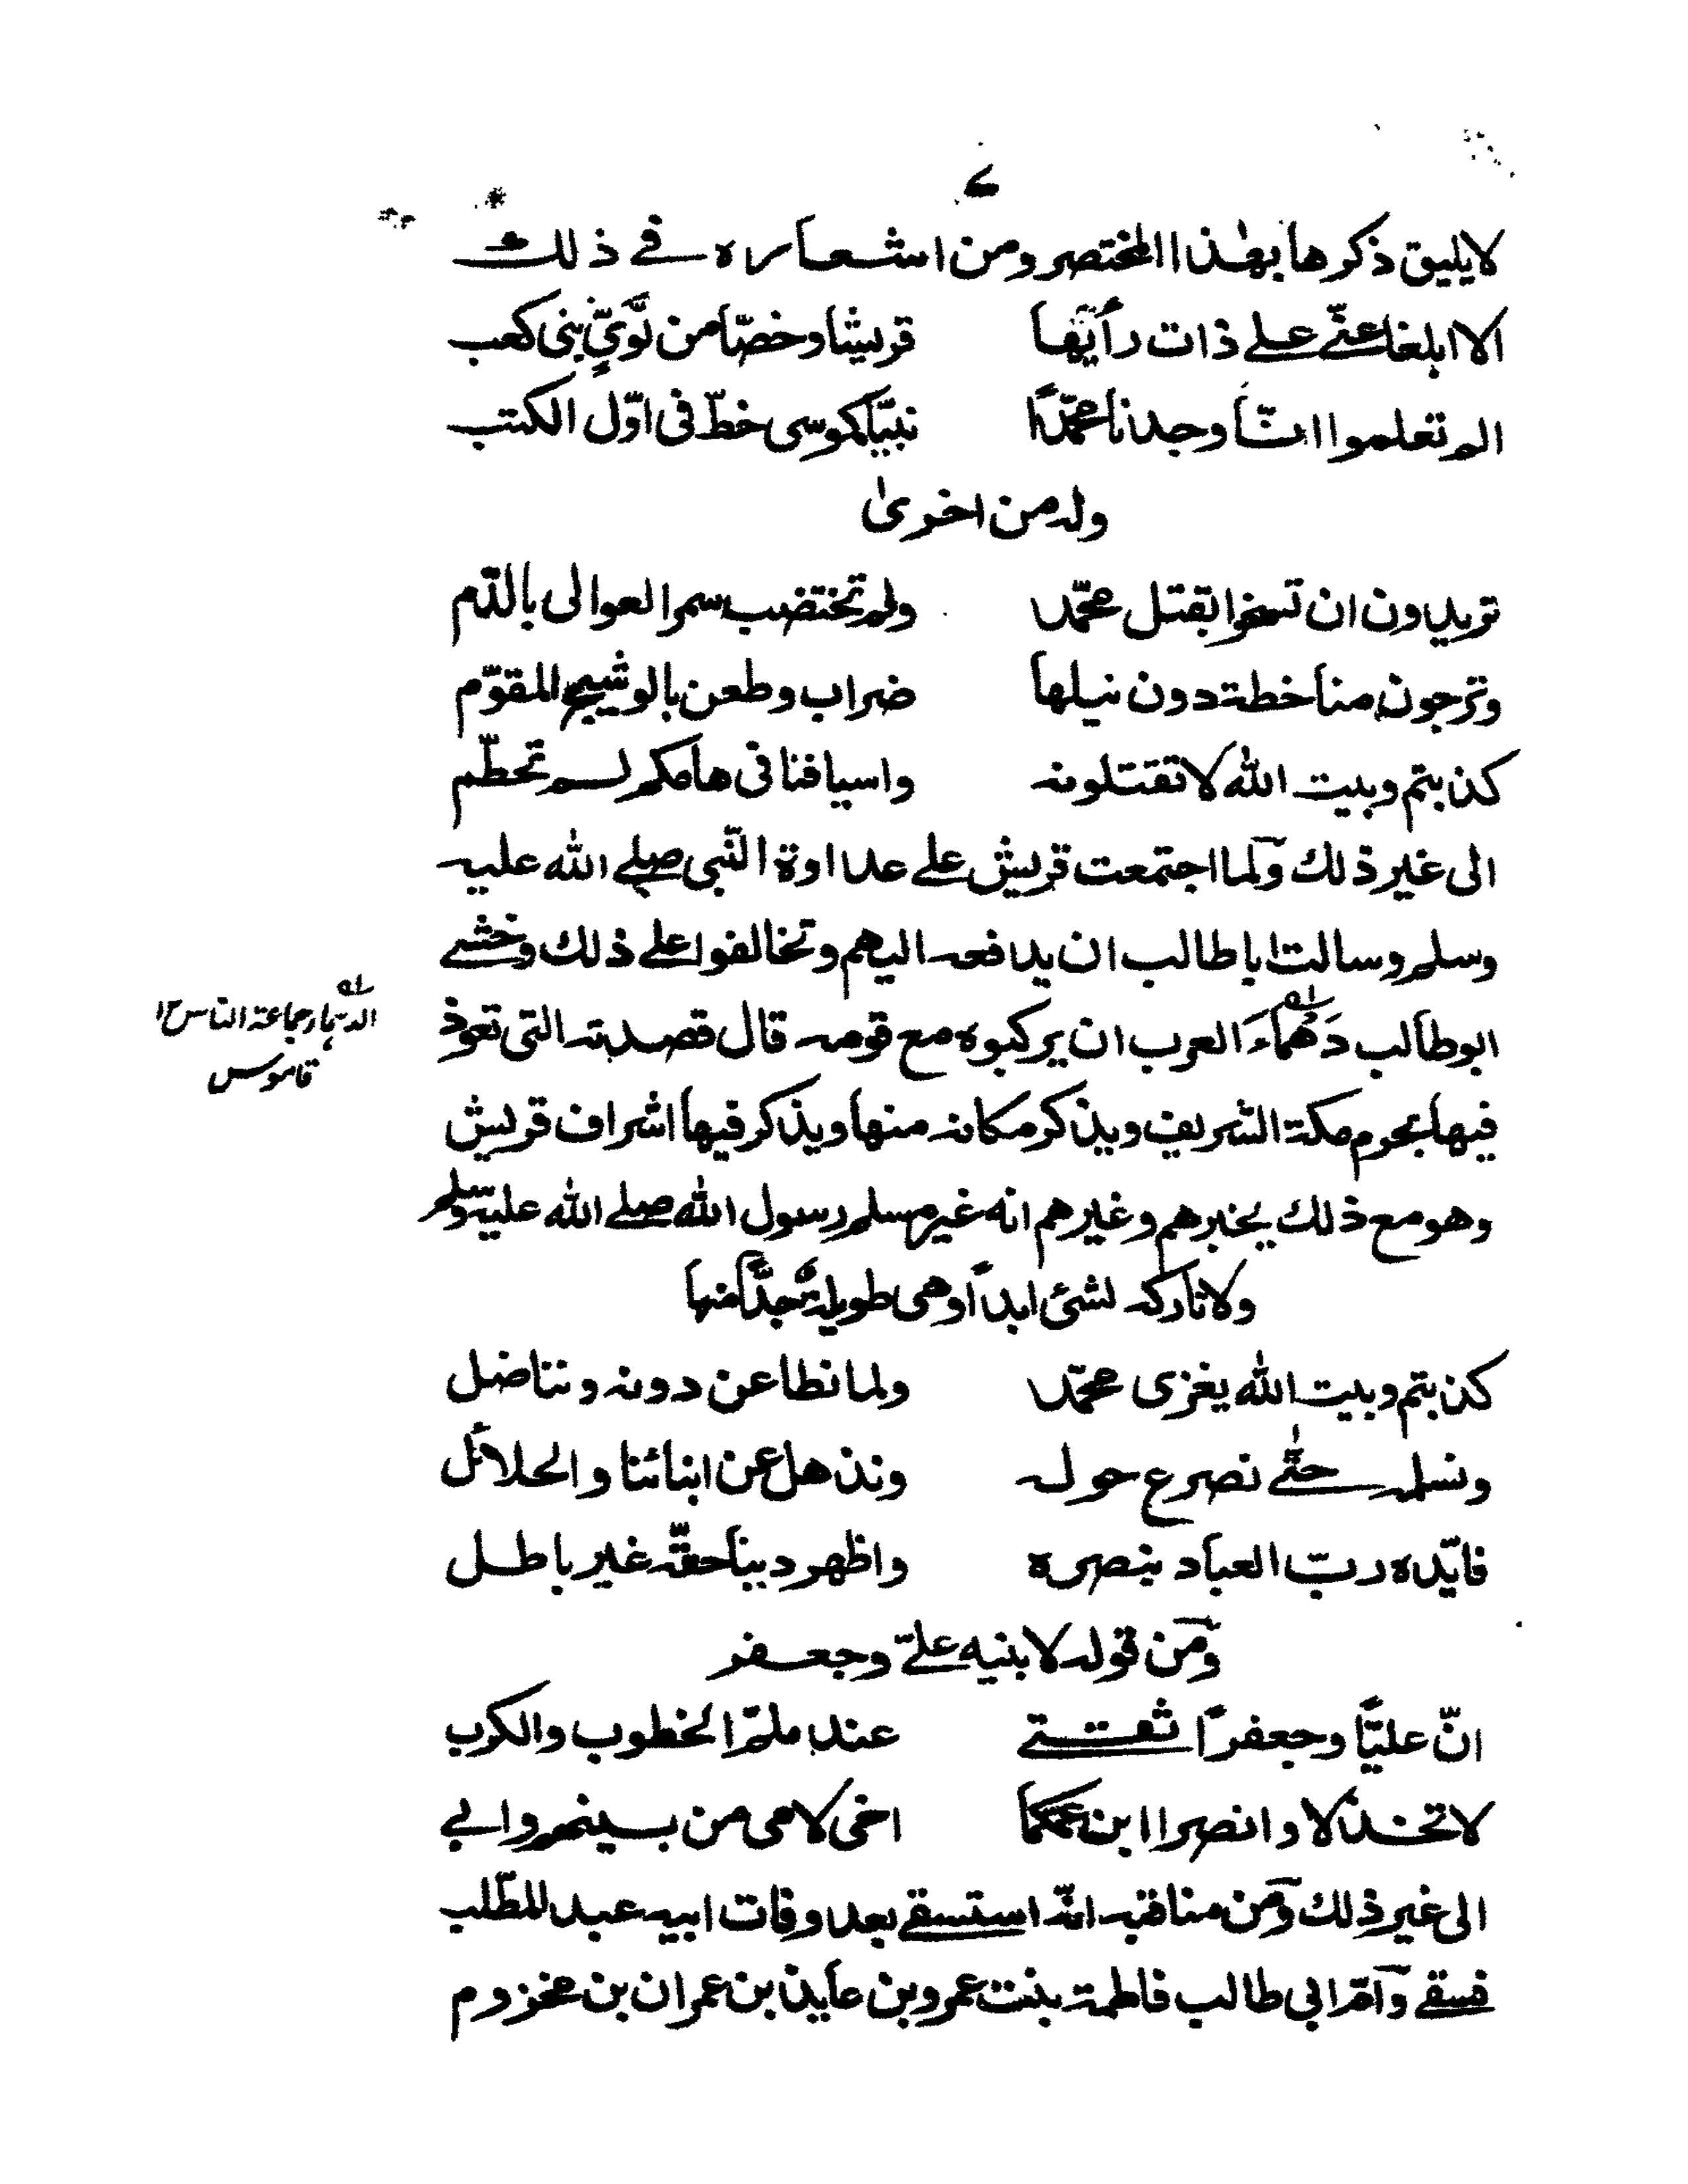 ۷
لا يليق ذكرها بهٰذا المختصر ومن اشعاره فى ذلك
الا ابلغا عنّى على ذات رأيها قريشا وخصّا من لوَيٍّ بنى كعب
الم تعلموا انّا وجدنا محمّدًا نبيّا كموسى خطّ فى اوّل الكتب
وله من اخرىٰ
تريدون ان نسخوا بقتل محمّد ولم تختضب سمر العوالى بالدّم
وترجون منا خطة دون نيلها ضراب وطعن بالوشيج المقوّم
كذبتم وبيت الله لا تقتلونه واسيافنا فى هامكم لم تحطّم
الى غير ذلك ولما اجتمعت قريش على عداوة النّبى صلى الله عليه
وسلم وسالت ابا طالب ان يدافعه اليهم وتخالفوا على ذلك وخشى
ابو طالب دَهْمَاءَ العرب ان يركبوه مع قومه قال قصيدته التى تعوذ
الدهماء جماعة الناس ١٢
قاموس
فيها بحرم مكة الشريف ويذكر مكانه منها ويذكر فيها اشراف قريش
وهو مع ذلك يخبرهم وغيرهم انه غير مسلم رسول الله صلى الله عليه وسلم
ولا تاركه لشئ ابدًا وهى طويلة جدًّا منها
كذبتم وبيت الله يغزى محمّد ولما نطاعن دونه ونناضل
ونسلمه حتّٰى نصرع حوله ونذهل عن ابنائنا والحلائل
فايّده ربّ العباد بنصره واظهر دينا حقّه غير باطل
ومن قوله لابنيه علىّ وجعفر
انّ عليّا وجعفرًا ثقتى عند ملمّ الخطوب والكرب
لا تخذلا وانصرا ابن عمّكما اخى لامى من بينهم وابى
الى غير ذلك ومن مناقبه انّه استسقى بعد وفات ابيه عبد المطّلب
فسقى وامّ ابى طالب فاطمة بنت عمرو بن عايذ بن عمران بن مخزوم